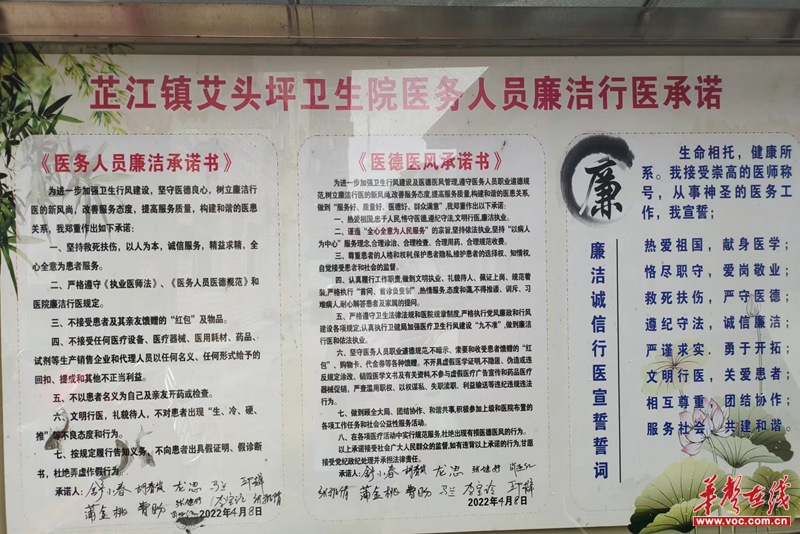 芷江镇艾头坪卫生院医务人员廉洁行医承诺
《医务人员廉洁承诺书》
为进一步加强卫生行风建设，坚守医德良心，树立廉洁行
医的新风尚，改善服务态度，提高服务质量，构建和谐的医患
关系，我郑重作出如下承诺：
一、坚持救死扶伤，以人为本，诚信服务，精益求精，全
心全意为患者服务。
二、严格遵守《执业医师法》、《医务人员医德规范》和
医院廉洁行医规定。
三、不接受患者及其亲友馈赠的“红包”及物品。
四、不接受任何医疗设备、医疗器械、医用耗材、药品、
试剂等生产销售企业和代理人员以任何名义、任何形式给予的
回扣、提成和其他不正当利益。
五、不以患者名义为自己及亲友开药或检查。
六、文明行医，礼貌待人，不对患者出现“生、冷、硬、
推”等不良态度和行为。
七、按规定履行告知义务，不向患者出具假证明、假诊断
书，杜绝弄虚作假行为。
承诺人：
2022年4月8日
《医德医风承诺书》
为进一步加强卫生行风建设及医德医风管理,遵守医务人员职业道德规
范,树立廉洁行医的新风尚,改善服务态度,提高服务质量,构建和谐的医患关系,
做到“服务好、质量好、医德好、群众满意”,我郑重作出以下承诺:
一、热爱祖国,忠于人民,恪守医德,遵纪守法,文明行医,廉洁执业。
二、谨遵“全心全意为人民服务”的宗旨,坚持依法执业,坚持“以病人
为中心”服务理念,合理诊治、合理检查、合理用药、合理规范收费。
三、尊重患者的人格和权利,保护患者隐私,维护患者的选择权、知情权,
自觉接受患者和社会的监督。
四、认真履行工作职责,做到文明执业、礼貌待人、佩证上岗、规范着
装,严格执行“首问、首诊负责制”,热情服务,态度和蔼,不得推诿、训斥、刁
难病人,耐心解答患者及家属的提问。
五、严格遵守卫生法律法规和医院规章制度,严格执行党风廉政和行风
建设各项规定,认真执行卫健局加强医疗卫生行风建设“九不准”,做到廉洁
行医和依法执业。
六、坚守医务人员职业道德规范,不暗示、索要和收受患者馈赠的“红
包”、购物卡、代金券等各种馈赠。不开具虚假医学证明,不隐匿、伪造或违
反规定涂改、销毁医学文书及有关资料,不参与虚假医疗广告宣传和药品医疗
器械促销,严查滥用职权、以权谋私、失职渎职、利益输送等违纪违规违法
行为。
七、做到顾全大局、团结协作、和谐共事,积极参加上级和医院布置的
各项工作任务和社会公益性服务活动。
八、在各项医疗活动中实行规范服务,杜绝出现有损医德医风的行为。
以上承诺接受社会广大人民群众的监督,如有违背以上承诺的行为,甘愿
接受党纪政纪处理并承担法律责任。
承诺人：
2022年4月8日
廉
廉洁诚信行医宣誓誓词
生命相托，健康所
系。我接受崇高的医师称
号，从事神圣的医务工
作，我宣誓；
热爱祖国，献身医学；
恪尽职守，爱岗敬业；
救死扶伤，严守医德；
遵纪守法，诚信廉洁；
严谨求实．勇于开拓；
文明行医，关爱患者；
相互尊重，团结协作；
服务社会，共建和谐。
华声在线
www.voc.com.cn